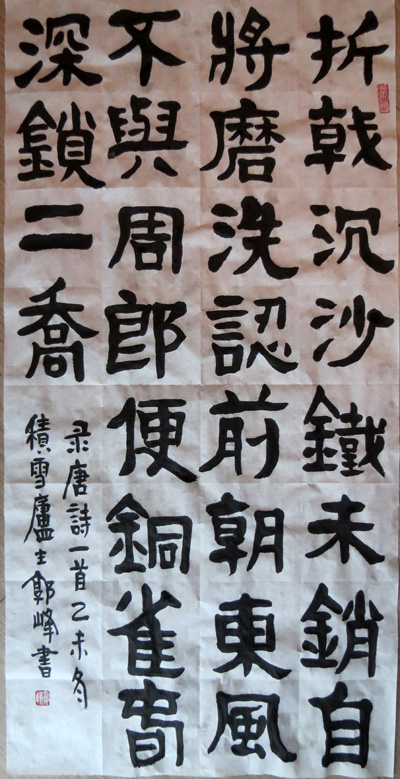 折戟沉沙鐵未銷自
將磨洗認前朝東風
不與周郎便銅雀旾
深鎖二喬
录唐詩一首乙未冬
積雪廬主鄭峰書